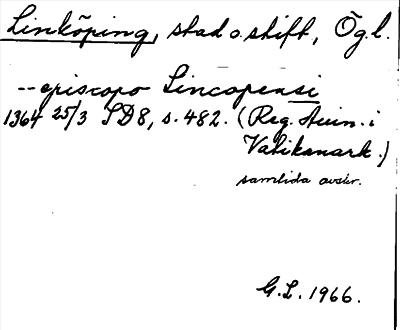 Linköping, stad o. stift, Ög.l.
-- episcopo Lincopensi
1364 25/3 SD8, s. 482. (Reg. Avin. i
Vatikanark.)
samtida avskr.
G.L. 1966.